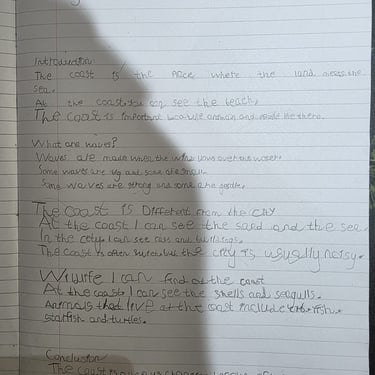 Introduction
The coast is the place where the land meets the
sea.
At the coast you can see the beach.
The coast is important because animals and people live there.
What are waves?
Waves are made when the wind blows over the water.
Some waves are big and some are small.
Some waves are strong and some are gentle.
The coast is Different from the city
At the coast I can see the sand and the sea.
In the city I can see cars and buildings.
The coast is often but the city is usually noisy.
I can find at the coast
At the coast I can see the shells and seagulls.
Animals that live at the coast include fish.
starfish and turtles.
Conclusion
The coast is